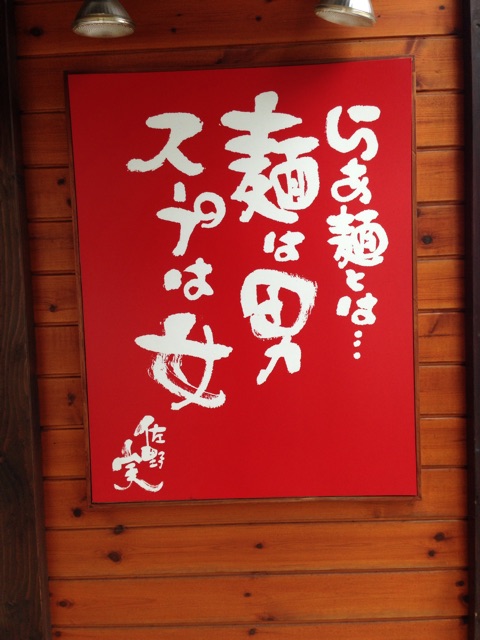 らあ麺とは…
麺は男
スープは女
佐野実